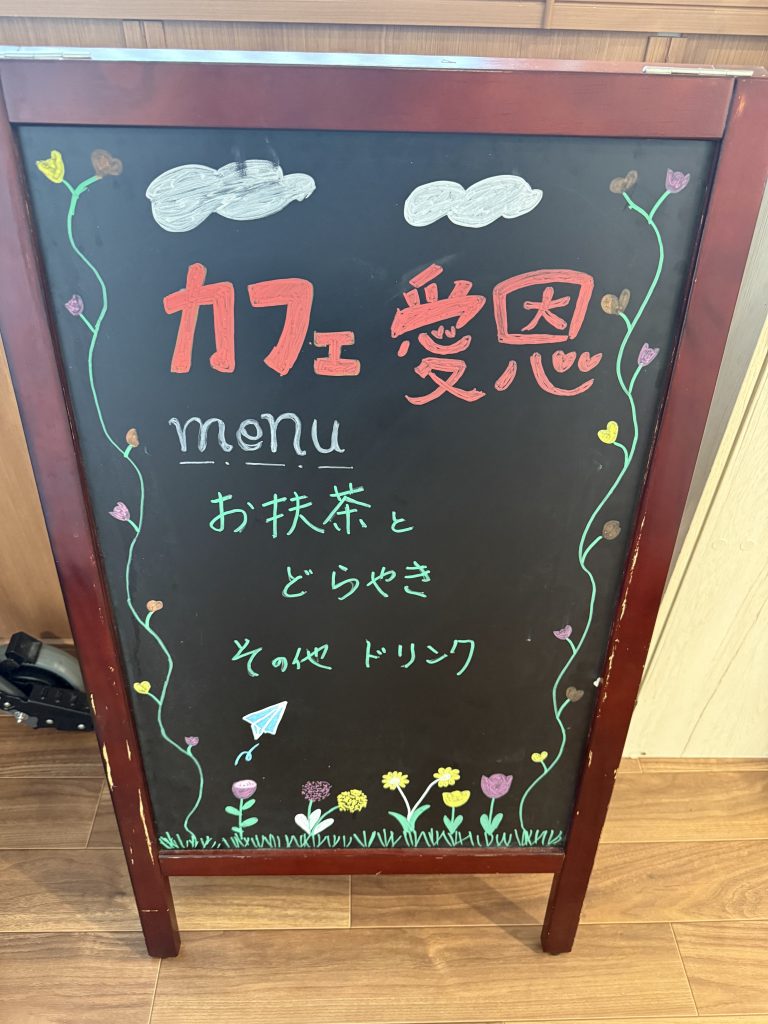 カフェ 愛恩
menu
お扶茶と
どらやき
その他 ドリンク